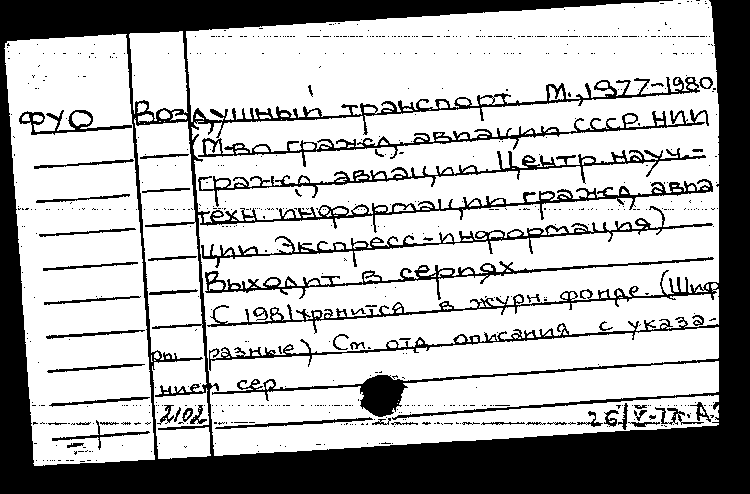 ФУО Воздушный транспорт. М., 1977-1980.
(М-во гражд. авиации СССР. НИИ
гражд. авиации. Центр. науч.=
техн. информации гражд. авиа-
ции. Экспресс-информация)
Выходит в сериях.
С 1981 хранится в журн. фонде. (Шиф
ры разные) См. отд. описания с указа-
нием сер.
2102
26/V-77г.